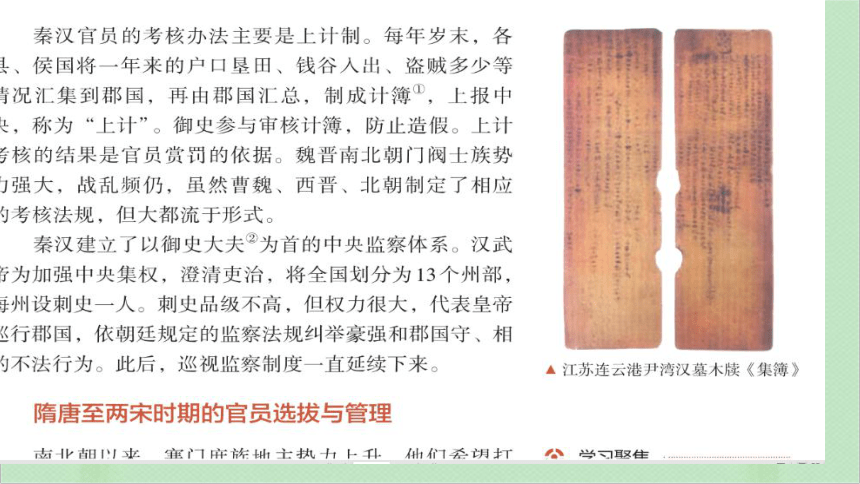 秦汉官员的考核办法主要是上计制。每年岁末，各
县、侯国将一年来的户口垦田、钱谷入出、盗贼多少等
情况汇集到郡国，再由郡国汇总，制成计簿①，上报中
央，称为“上计”。御史参与审核计簿，防止造假。上计
考核的结果是官员赏罚的依据。魏晋南北朝门阀士族势
力强大，战乱频仍，虽然曹魏、西晋、北朝制定了相应
的考核法规，但大都流于形式。
秦汉建立了以御史大夫②为首的中央监察体系。汉武
帝为加强中央集权，澄清吏治，将全国划分为13个州部，
每州设刺史一人。刺史品级不高，但权力很大，代表皇帝
巡行郡国，依朝廷规定的监察法规纠举豪强和郡国守、相
的不法行为。此后，巡视监察制度一直延续下来。
▲ 江苏连云港尹湾汉墓木牍《集簿》
隋唐至两宋时期的官员选拔与管理
南北朝以来，寒门庶族地主势力上升，他们希望打
学习聚焦